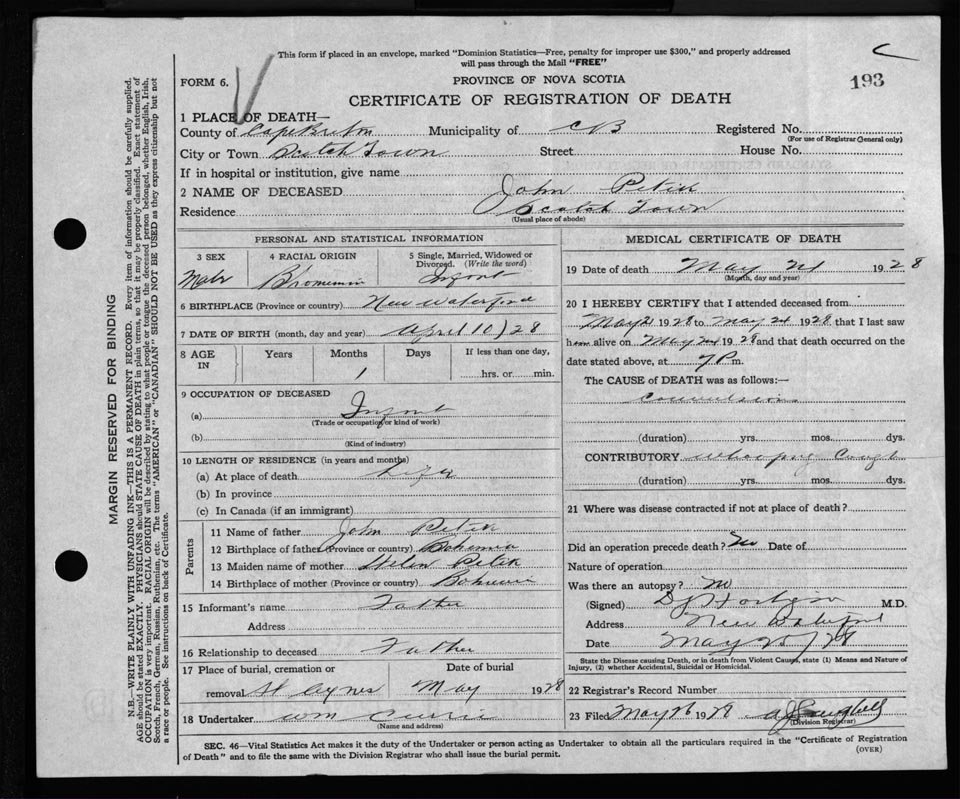 This form if placed in an envelope, marked "Dominion Statistics—Free, penalty for improper use $300," and properly addressed
will pass through the Mail "FREE"
FORM 6.
PROVINCE OF NOVA SCOTIA
193
CERTIFICATE OF REGISTRATION OF DEATH
1 PLACE OF DEATH—
County of Cape Breton Municipality of CB Registered No.
(For use of Registrar General only)
City or Town Scotch Town Street House No.
If in hospital or institution, give name
2 NAME OF DECEASED John
Residence Scotch Town
(Usual place of abode)
PERSONAL AND STATISTICAL INFORMATION
3 SEX 4 RACIAL ORIGIN 5 Single, Married, Widowed or Divorced. (Write the word)
Male Infant
6 BIRTHPLACE (Province or country) New Waterford
7 DATE OF BIRTH (month, day and year) April 10/28
8 AGE IN Years Months Days If less than one day,
1 hrs. or min.
9 OCCUPATION OF DECEASED
(a) Infant
(Trade or occupation or kind of work)
(b)
(Kind of industry)
10 LENGTH OF RESIDENCE (in years and months)
(a) At place of death
(b) In province
(c) In Canada (if an immigrant)
Parents
11 Name of father John
12 Birthplace of father (Province or country) Bohemia
13 Maiden name of mother Helen
14 Birthplace of mother (Province or country)
15 Informant's name Father
Address
16 Relationship to deceased Father
17 Place of burial, cremation or Date of burial
removal St Agnes May 1928
18 Undertaker Wm Currie
(Name and address)
MEDICAL CERTIFICATE OF DEATH
19 Date of death May 1928
(Month, day and year)
20 I HEREBY CERTIFY that I attended deceased from
May 21 1928 to May 24 1928 that I last saw
him alive on May 1928 and that death occurred on
date stated above, at 7 P m.
The CAUSE of DEATH was as follows:—
Convulsions
(duration) yrs. mos. dys.
CONTRIBUTORY Whooping Cough
(duration) yrs. mos. dys.
21 Where was disease contracted if not at place of death?
Did an operation precede death? No Date of
Nature of operation
Was there an autopsy? No
(Signed) M.D.
Address New Waterford
Date May 25/28
State the Disease causing Death, or in death from Violent Causes, state (1) Means and Nature of
Injury, (2) whether Accidental, Suicidal or Homicidal.
22 Registrar's Record Number
23 Filed May 26 1928
(Division Registrar)
SEC. 46—Vital Statistics Act makes it the duty of the Undertaker or person acting as Undertaker to obtain all the particulars required in the "Certificate of Registration
of Death" and to file the same with the Division Registrar who shall issue the burial permit.
(OVER)
MARGIN RESERVED FOR BINDING
N.B.—WRITE PLAINLY WITH UNFADING INK—THIS IS A PERMANENT RECORD. Every item of information should be carefully supplied.
AGE should be stated EXACTLY. PHYSICIANS should STATE CAUSE OF DEATH in plain terms, so that it may be properly classified. Exact statement of
OCCUPATION is very important. RACIAL ORIGIN will be described by stating to what people or tongue the deceased person belonged, whether English, Irish,
Scotch, French, German, Russian, Ruthenian, etc. The terms "AMERICAN" or "CANADIAN" SHOULD NOT BE USED as they express citizenship but not
a race or people. See instructions on back of Certificate.